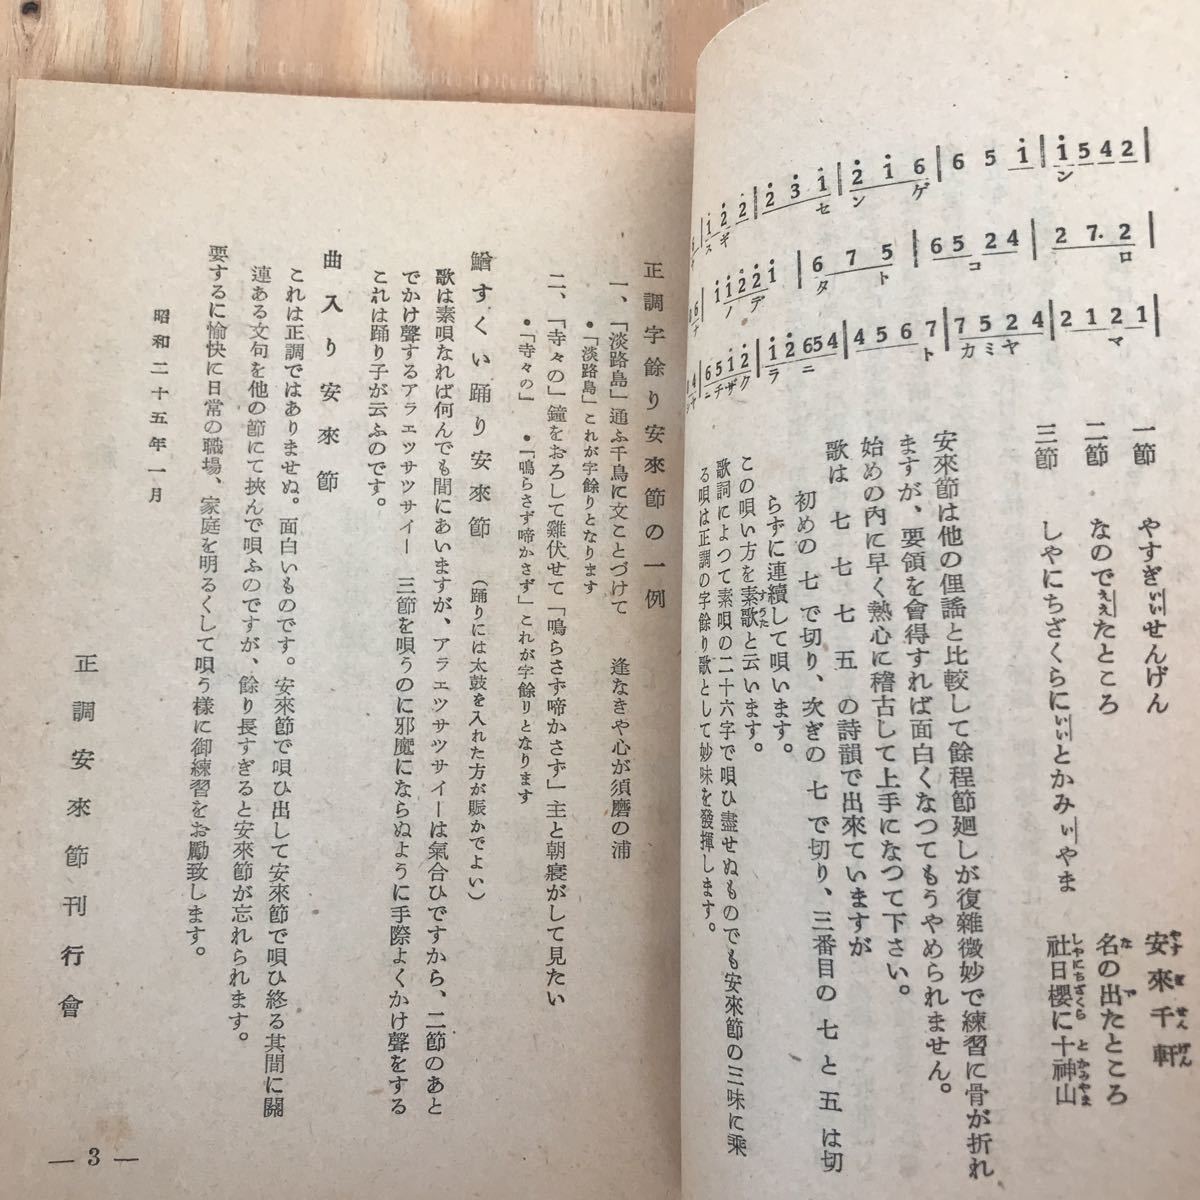 2 3 1 | 2 1 6 | 6 5 1 | 1 5 4 2
スギ セ ン ゲ ン
1 1 2 2 1 | 6 7 5 | 6 5 2 4 | 2 7. 2
ノ デ タ ト コ ロ
6 5 1 2 | 1 2 6 5 4 | 4 5 6 7 | 7 5 2 4 | 2 1 2 1
ニチザク ラ ニ ト カ ミ ヤ マ
一節 やすぎいいせんげん 安來千軒
二節 なのでええたところ 名の出たところ
三節 しやにちざくらにいいとかみいやま 社日櫻に十神山
安來節は他の俚謠と比較して餘程節廻しが復雜微妙で練習に骨が折れ
ますが、要領を會得すれば面白くなつてもうやめられません。
始めの內に早く熱心に稽古して上手になつて下さい。
歌は 七 七 七 五 の詩韻で出來ていますが
初めの 七 で切り、次ぎの 七 で切り、三番目の 七 と 五 は切
らずに連續して唄います。
この唄い方を素歌と云います。
歌詞によつて素唄の二十六字で唄ひ盡せぬものでも安來節の三味に乘
る唄は正調の字餘り歌として妙味を發揮します。
正調字餘り安來節の一例
一、「淡路島」通ふ千鳥に文ことづけて 逢なきや心が須磨の浦
●「淡路島」これが字餘りとなります
二、「寺々の」鐘をおろして雞伏せて「鳴らさず啼かさず」主と朝寢がして見たい
●「寺々の」 ●「鳴らさず啼かさず」これが字餘りとなります
鰌すくい踊り安來節 (踊りには太鼓を入れた方が賑かでよい)
歌は素唄なれば何んでも間にあいますが、アラエツサツサイーは氣合ひですから、二節のあと
でかけ聲するアラエッサッサイー 三節を唄うのに邪魔にならぬように手際よくかけ聲をする
これは踊り子が云ふのです。
曲入り安來節
これは正調ではありませぬ。面白いものです。安來節で唄ひ出して安來節で唄ひ終る其間に關
連ある文句を他の節にて挾んで唄ふのですが、餘り長すぎると安來節が忘れられます。
要するに愉快に日常の職場、家庭を明るくして唄う様に御練習をお勵致します。
昭和二十五年一月
正調安來節刊行會
— 3 —